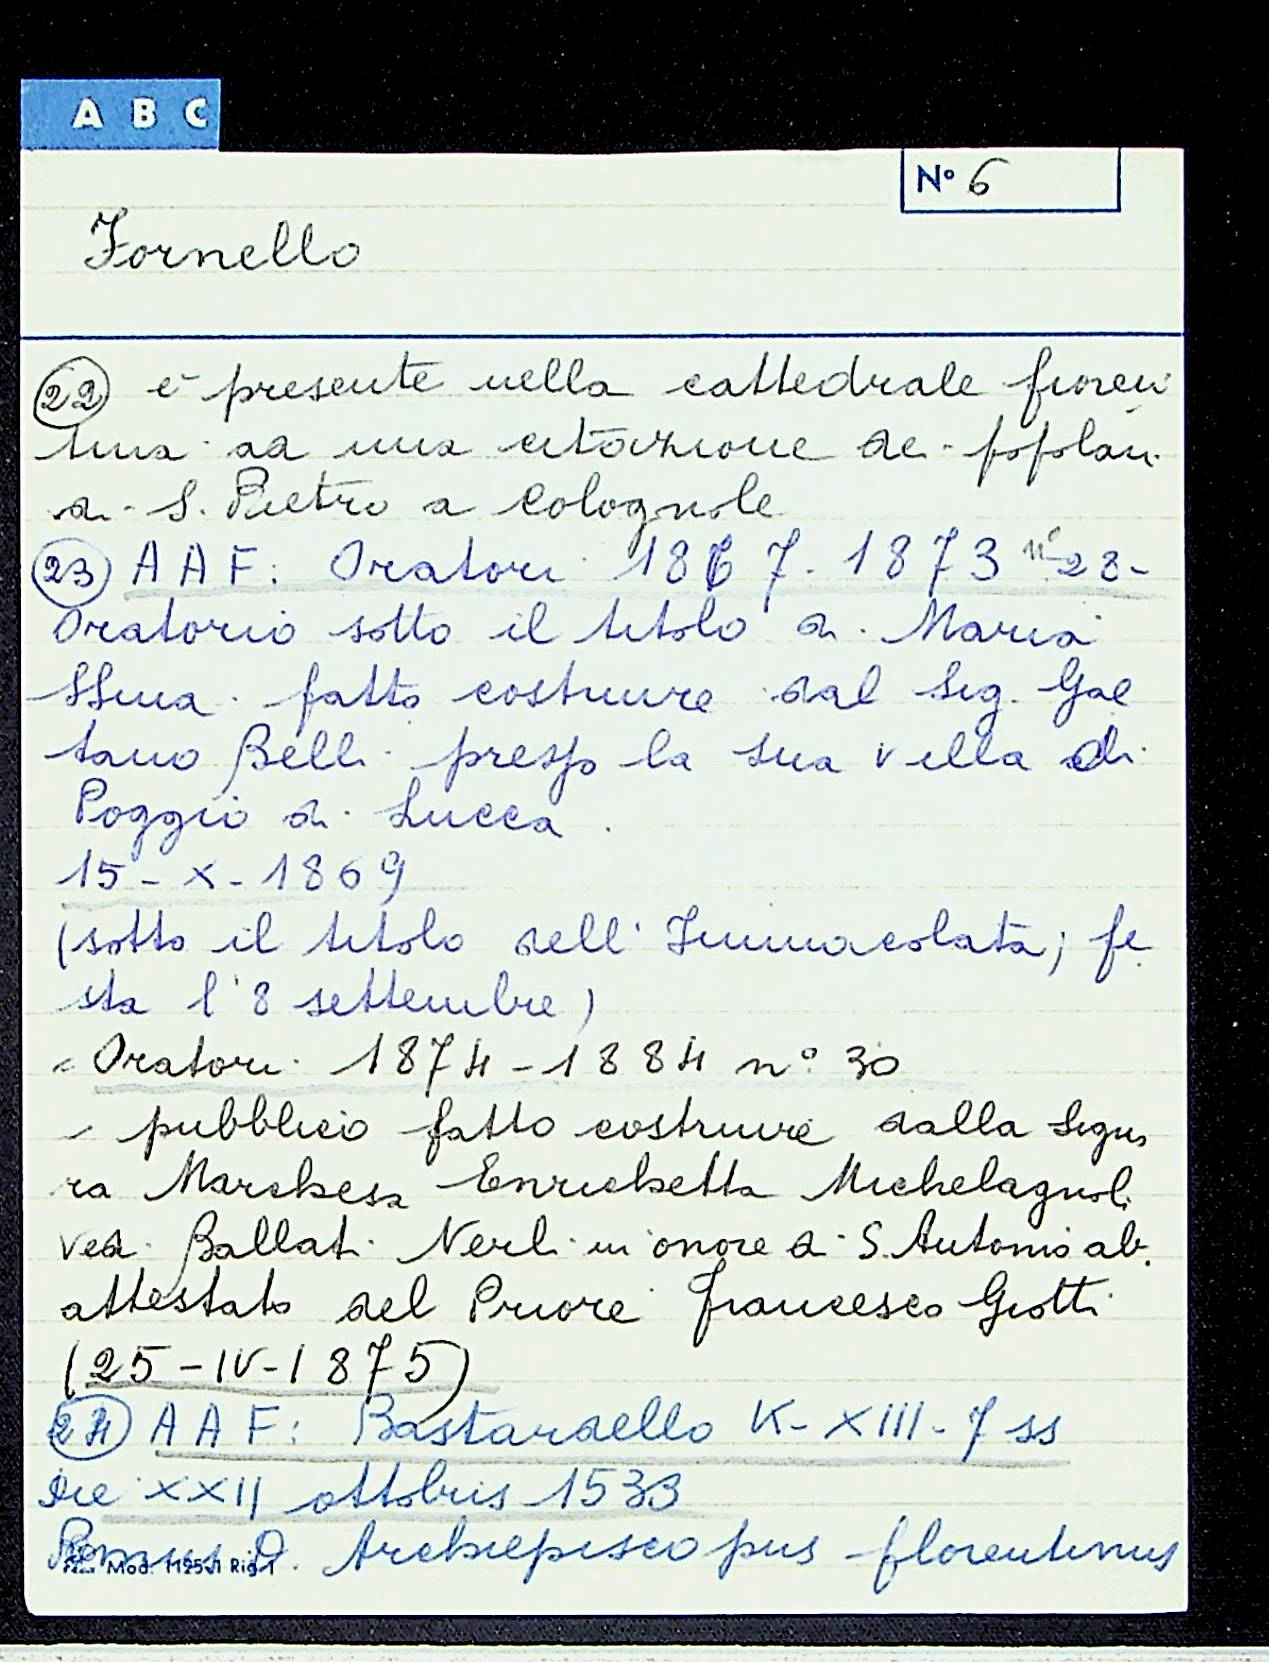 A B C
Nº 6
Fornello
(22) è presente nella cattedrale fioren
tina ad una citazione dei popolani
di S. Pietro a Colognole
(23) A A F: Oratori 1867-1873 nº 28-
Oratorio sotto il titolo di Maria
SSma fatto costruire dal Sig. Gae
tano Belli presso la sua villa di
Poggio di Lucca.
15-X-1869
(sotto il titolo dell'Immacolata; fe
sta l'8 settembre)
- Oratori 1874-1884 nº 30
- pubblico fatto costruire dalla Signo
ra Marchesa Enrichetta Michelagnoli
ved. Ballati Nerli in onore di S. Antonio ab.
attestato del Priore Francesco Giotti
(25-IV-1875)
(24) A A F: Bastardello K-XIII-7 ss
Die XXII ottobris 1533
D. Archiepiscopus florentinus
Mod. 1125/1 Rig.1